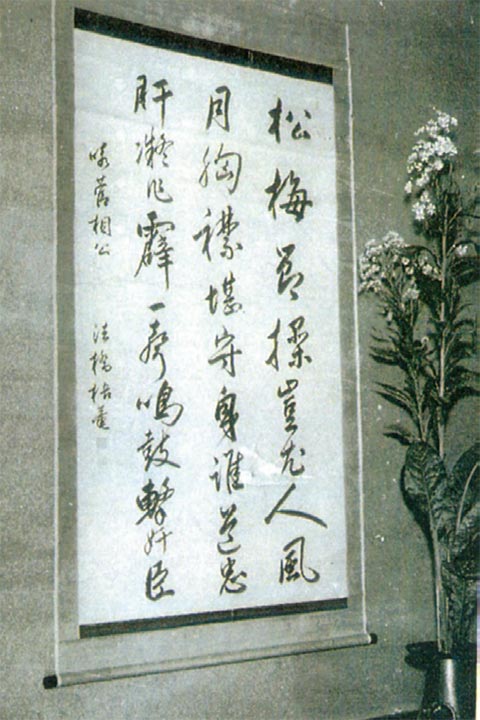 松梅節操豈尤人風
月胸襟堪守身誰道忠
肝凝作霹一聲鳴鼓擊奸臣
咏菅相公 法橋